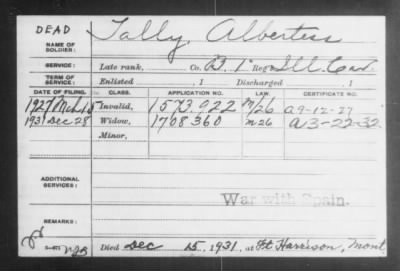 DEAD
Tally, Albertess
NAME OF
SOLDIER:
SERVICE: Late rank, Co. B, 1 Reg't Ill. Cav.
TERM OF
SERVICE: Enlisted , 1 Discharged , 1
DATE OF FILING. CLASS. APPLICATION NO. LAW. CERTIFICATE NO.
1927 Mch 15 Invalid, 1573,922 M/26 A9-12-27
1931 Dec 28 Widow, 1708360 M26 A3-22-32
Minor,
ADDITIONAL
SERVICES:
War with Spain.
REMARKS:
Died Dec 15, 1931, at Ft Harrison, Mont